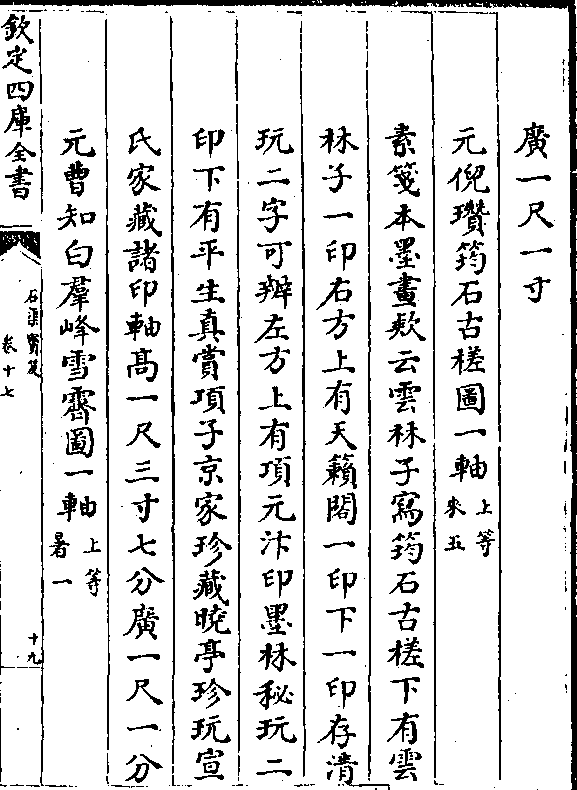 廣一尺一寸
元倪瓚筠石古槎圖一軸 上等
來五
素箋本墨畫欵云雲林子寫筠石古槎下有雲
林子一印右方上有天籟閣一印下一印存清
玩二字可辨左方上有項元汴印墨林秘玩二
印下有平生真賞項子京家珍藏曉亭珍玩宣
氏家藏諸印軸高一尺三寸七分廣一尺一分
元曹知白羣峰雪霽圖一軸 上等
暑一
欽定四庫全書
石渠寳笈
卷十七
十九